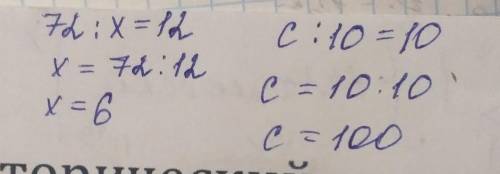 72 : x = 12
x = 72 : 12
x = 6
c : 10 = 10
c = 10 : 10
c = 100